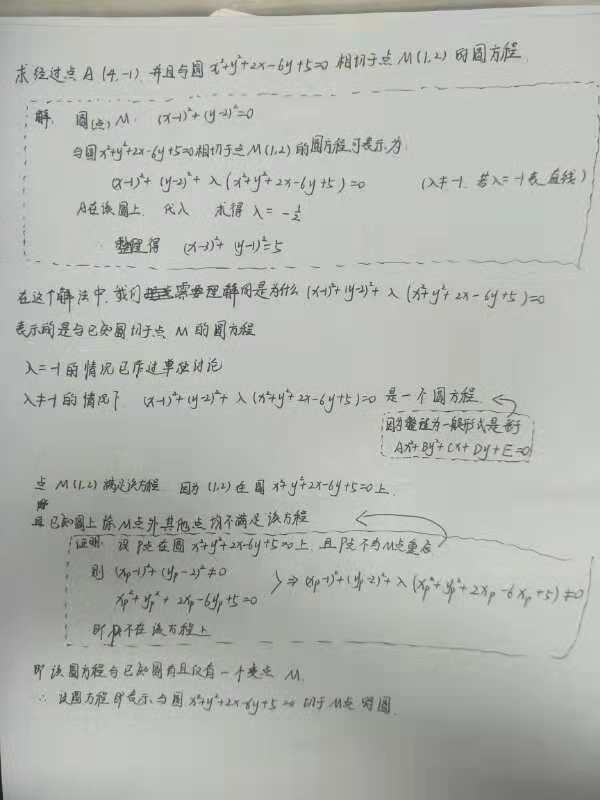 求经过点 A (4,-1) 并且与圆 x²+y²+2x-6y+5=0 相切于点 M (1,2) 的圆方程.
解: 圆(点) M: (x-1)²+(y-2)²=0
与圆 x²+y²+2x-6y+5=0 相切于点 M (1,2) 的圆方程可表示为:
(x-1)²+(y-2)²+λ(x²+y²+2x-6y+5)=0 (λ≠-1. 若λ=-1 表直线)
A在该圆上. 代入 求得 λ=-1/2
整理得 (x-3)²+(y-1)²=5
在这个解法中, 我们需要理解的是为什么 (x-1)²+(y-2)²+λ(x²+y²+2x-6y+5)=0
表示的是与已知圆切于点 M 的圆方程
λ=-1 的情况已作过单独讨论
λ≠-1 的情况下. (x-1)²+(y-2)²+λ(x²+y²+2x-6y+5)=0 是一个圆方程.
因为整理为一般形式是形于
Ax²+By²+Cx+Dy+E=0
点 M (1,2) 满足该方程. 因为 (1,2) 在圆 x²+y²+2x-6y+5=0上.
且已知圆上除M点外其他点均不满足该方程
证明: 设 P点在圆 x²+y²+2x-6y+5=0上, 且P点不与M点重合
则 (xp-1)²+(yp-2)²≠0
xp²+yp²+2xp-6yp+5=0
⇒ (xp-1)²+(yp-2)²+λ(xp²+yp²+2xp-6xp+5)≠0
即 P不在该方程上
即该圆方程与已知圆有且仅有一个交点 M.
∴ 该圆方程即表示与圆 x²+y²+2x-6y+5=0 切于M点的圆.